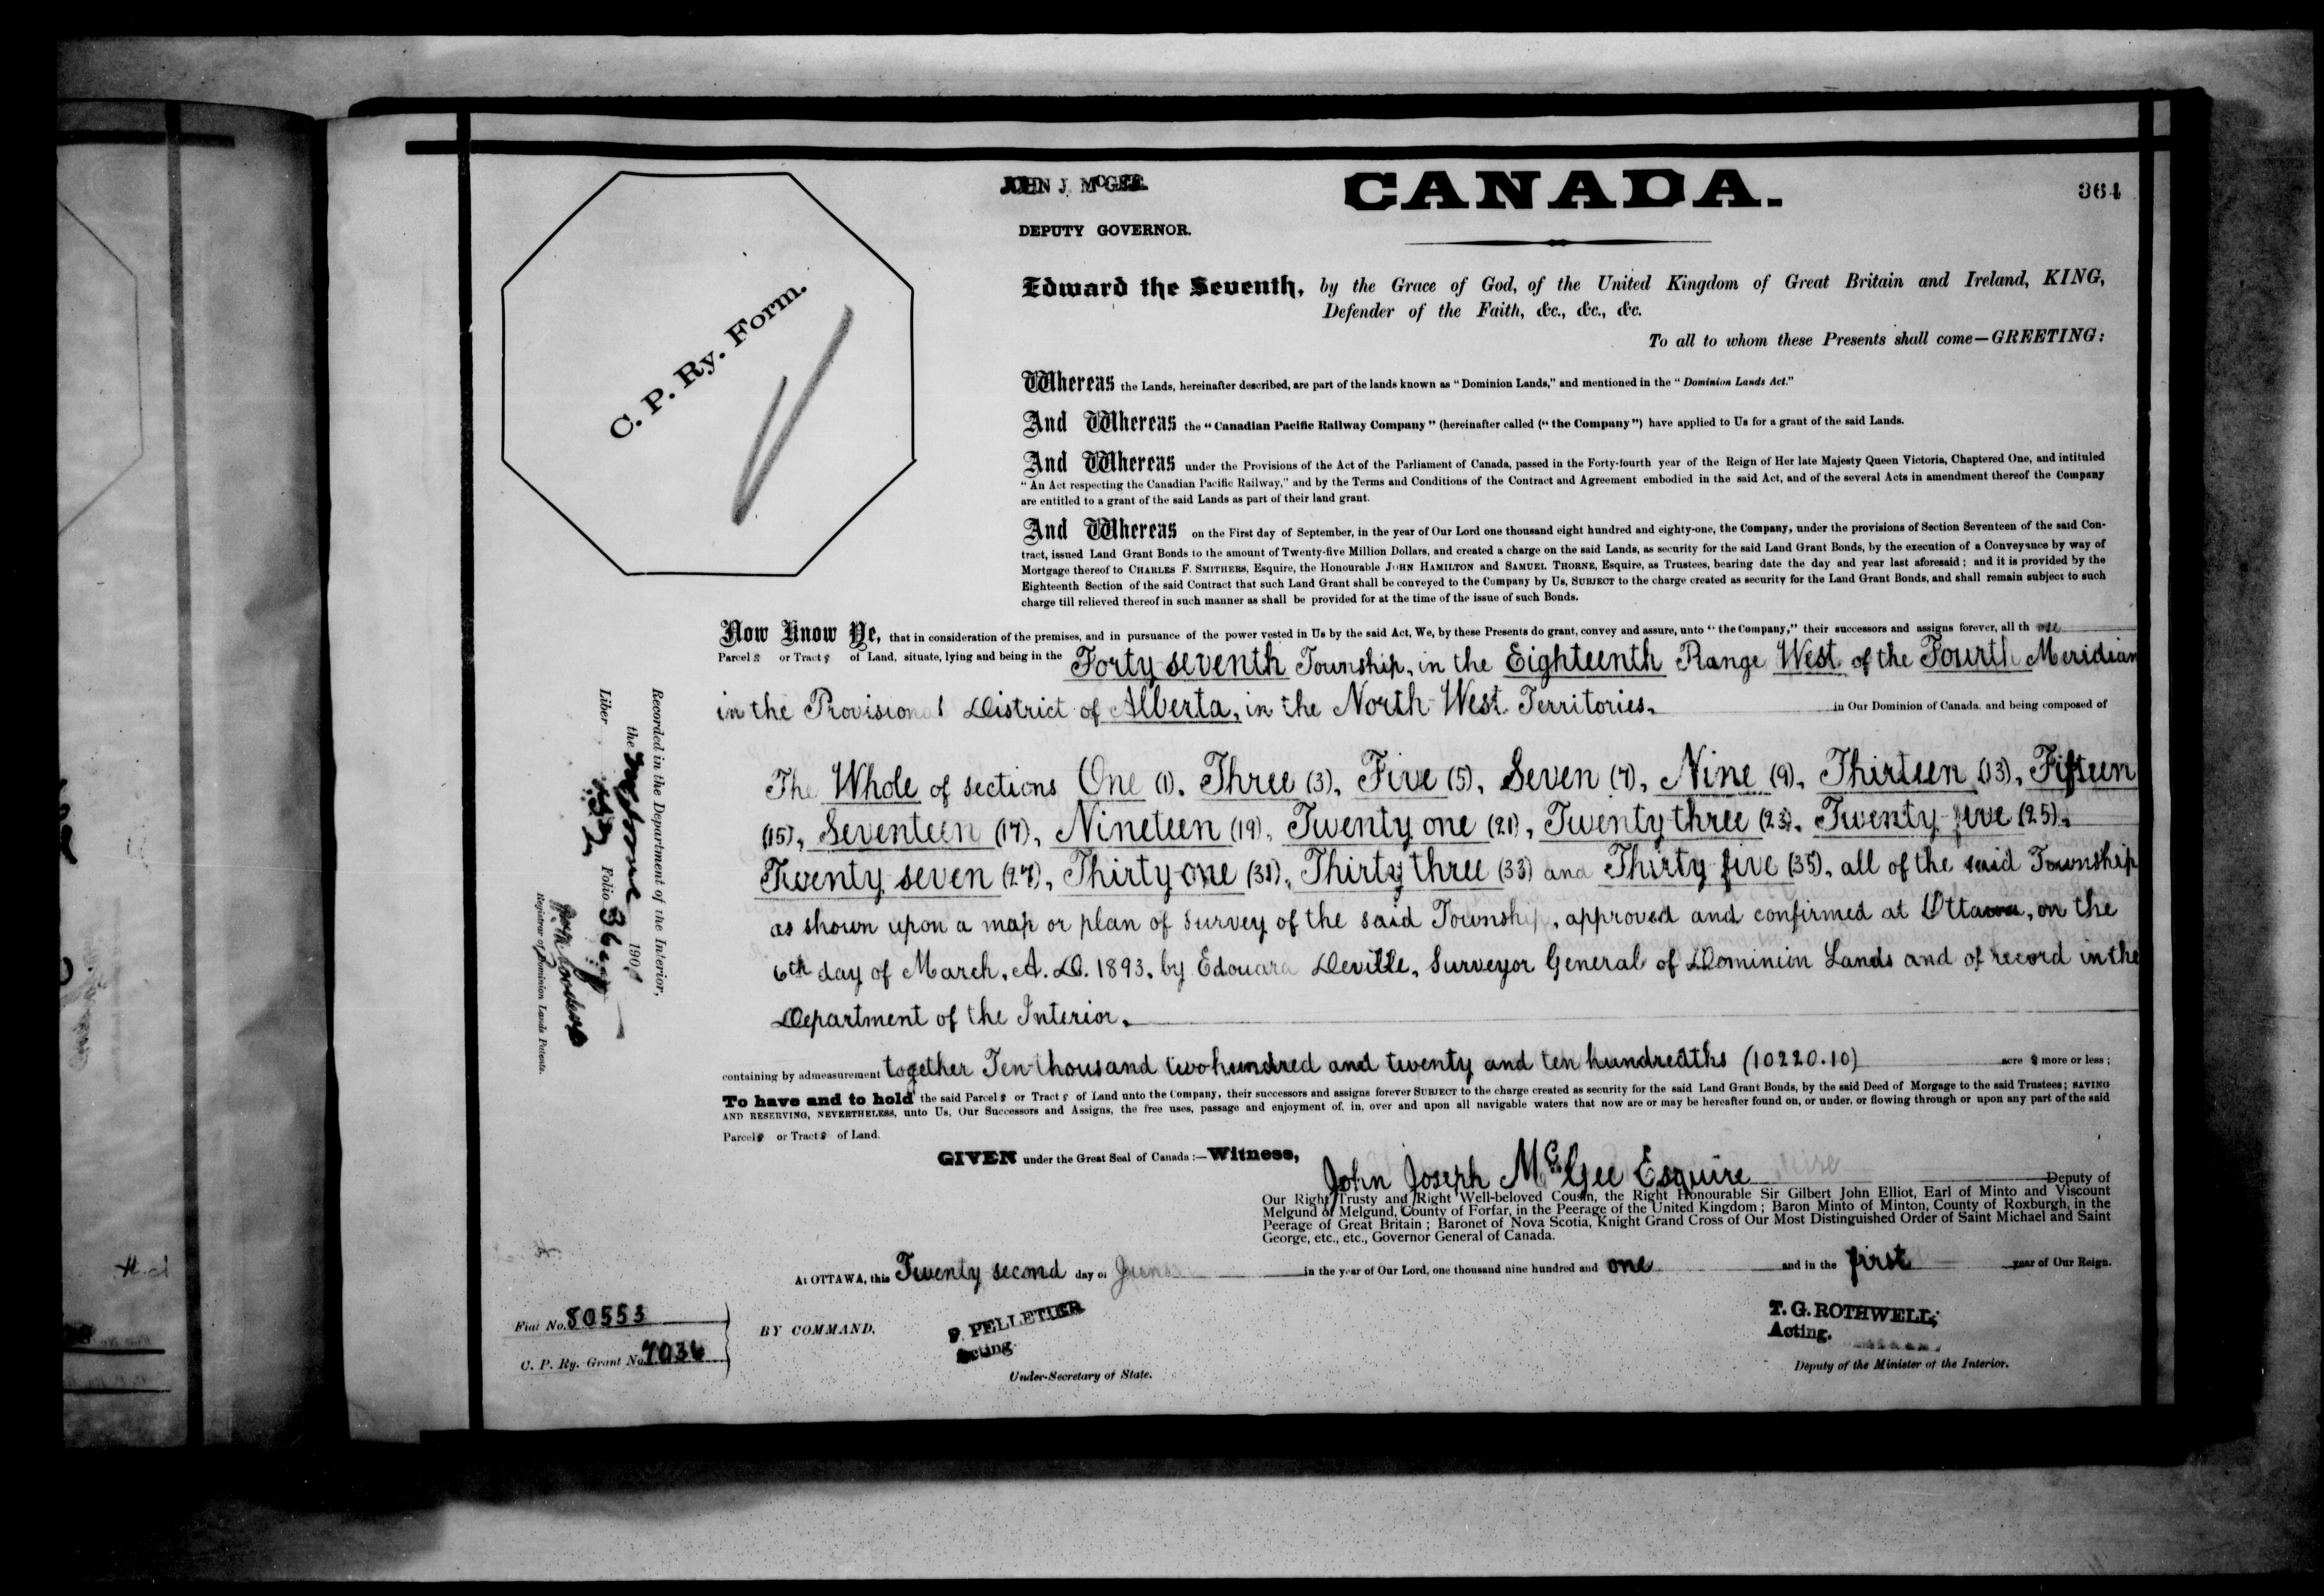 364
JOHN J. McGEE.
DEPUTY GOVERNOR.
CANADA.
C. P. Ry. Form.
Edward the Seventh, by the Grace of God, of the United Kingdom of Great Britain and Ireland, KING,
Defender of the Faith, &c., &c., &c.
To all to whom these Presents shall come—GREETING:
Whereas the Lands, hereinafter described, are part of the lands known as "Dominion Lands," and mentioned in the "Dominion Lands Act."
And Whereas the "Canadian Pacific Railway Company" (hereinafter called ("the Company") have applied to Us for a grant of the said Lands.
And Whereas under the Provisions of the Act of the Parliament of Canada, passed in the Forty-fourth year of the Reign of Her late Majesty Queen Victoria, Chaptered One, and intituled
"An Act respecting the Canadian Pacific Railway," and by the Terms and Conditions of the Contract and Agreement embodied in the said Act, and of the several Acts in amendment thereof the Company
are entitled to a grant of the said Lands as part of their land grant.
And Whereas on the First day of September, in the year of Our Lord one thousand eight hundred and eighty-one, the Company, under the provisions of Section Seventeen of the said Con-
tract, issued Land Grant Bonds to the amount of Twenty-five Million Dollars, and created a charge on the said Lands, as security for the said Land Grant Bonds, by the execution of a Conveyance by way of
Mortgage thereof to CHARLES F. SMITHERS, Esquire, the Honourable JOHN HAMILTON and SAMUEL THORNE, Esquire, as Trustees, bearing date the day and year last aforesaid; and it is provided by the
Eighteenth Section of the said Contract that such Land Grant shall be conveyed to the Company by Us, SUBJECT to the charge created as security for the Land Grant Bonds, and shall remain subject to such
charge till relieved thereof in such manner as shall be provided for at the time of the issue of such Bonds.
Now Know Ye, that in consideration of the premises, and in pursuance of the power vested in Us by the said Act, We, by these Presents do grant, convey and assure, unto "the Company," their successors and assigns forever, all th ose
Parcel s or Tract s of Land, situate, lying and being in the Forty seventh Township, in the Eighteenth Range West of the Fourth Meridian
in the Provisional District of Alberta, in the North West Territories. in Our Dominion of Canada, and being composed of
The Whole of sections One (1), Three (3), Five (5), Seven (7), Nine (9), Thirteen (13), Fifteen
(15), Seventeen (17), Nineteen (19), Twenty one (21), Twenty three (23), Twenty five (25),
Twenty seven (27), Thirty one (31), Thirty three (33) and Thirty five (35), all of the said Township
as shown upon a map or plan of survey of the said Township, approved and confirmed at Ottawa, on the
6th day of March, A. D. 1893, by Edouard Deville, Surveyor General of Dominion Lands and of record in the
Department of the Interior.
containing by admeasurement together Ten thousand two hundred and twenty and ten hundredths (10220.10) acre s more or less;
To have and to hold the said Parcel s or Tract s of Land unto the Company, their successors and assigns forever SUBJECT to the charge created as security for the said Land Grant Bonds, by the said Deed of Morgage to the said Trustees; SAVING
AND RESERVING, NEVERTHELESS, unto Us, Our Successors and Assigns, the free uses, passage and enjoyment of, in, over and upon all navigable waters that now are or may be hereafter found on, or under, or flowing through or upon any part of the said
Parcel s or Tract s of Land.
GIVEN under the Great Seal of Canada:—Witness, John Joseph McGee Esquire Deputy of
Our Right Trusty and Right Well-beloved Cousin, the Right Honourable Sir Gilbert John Elliot, Earl of Minto and Viscount
Melgund of Melgund, County of Forfar, in the Peerage of the United Kingdom; Baron Minto of Minton, County of Roxburgh, in the
Peerage of Great Britain; Baronet of Nova Scotia, Knight Grand Cross of Our Most Distinguished Order of Saint Michael and Saint
George, etc., etc., Governor General of Canada.
At OTTAWA, this Twenty second day of June in the year of Our Lord, one thousand nine hundred and one and in the first year of Our Reign.
BY COMMAND,
P. PELLETIER
Acting
Under-Secretary of State.
T. G. ROTHWELL,
Acting.
Deputy of the Minister of the Interior.
Fiat No. 80553
C. P. Ry. Grant No. 7036
Recorded in the Department of the Interior,
the 190
Liber Folio 364
Registrar of Dominion Lands Patents.